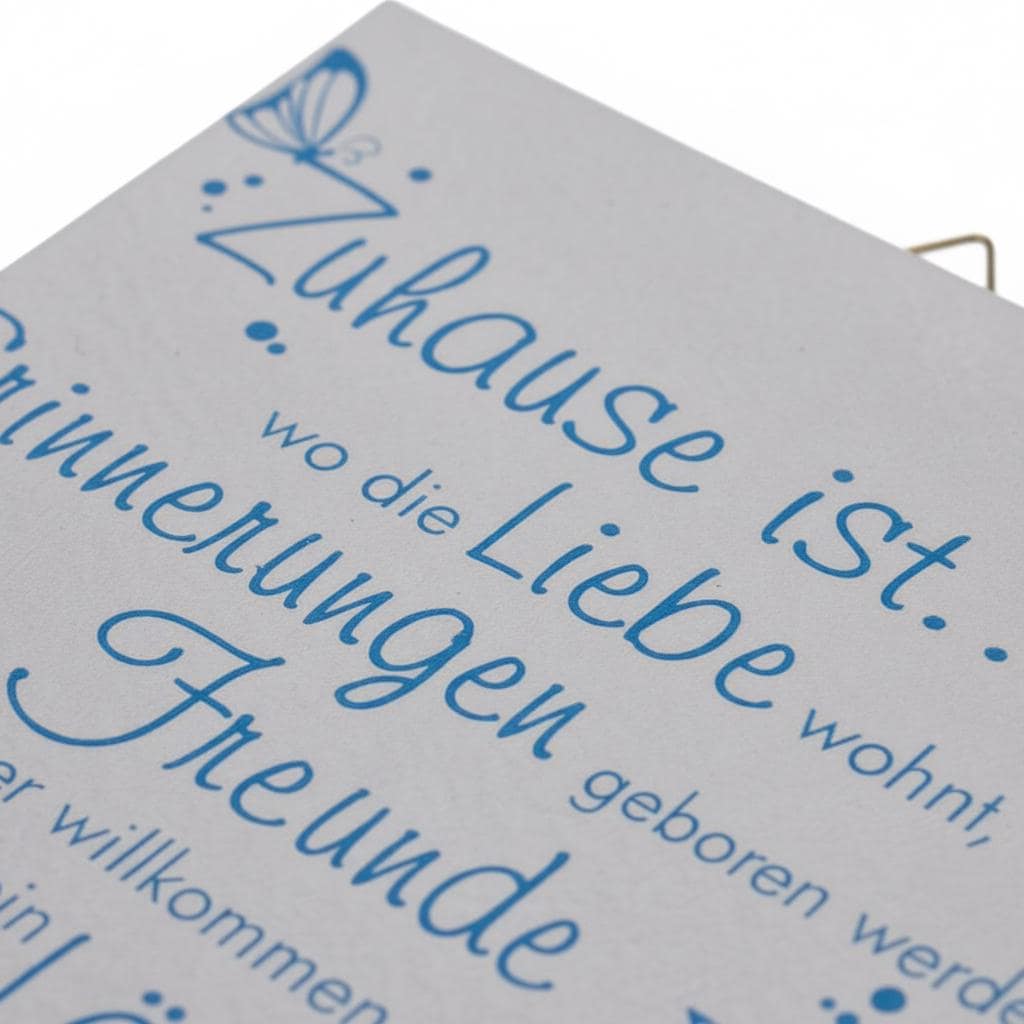 Zuhause ist..
wo die Liebe wohnt,
Erinnerungen geboren werde
Freunde
er willkommen
ein